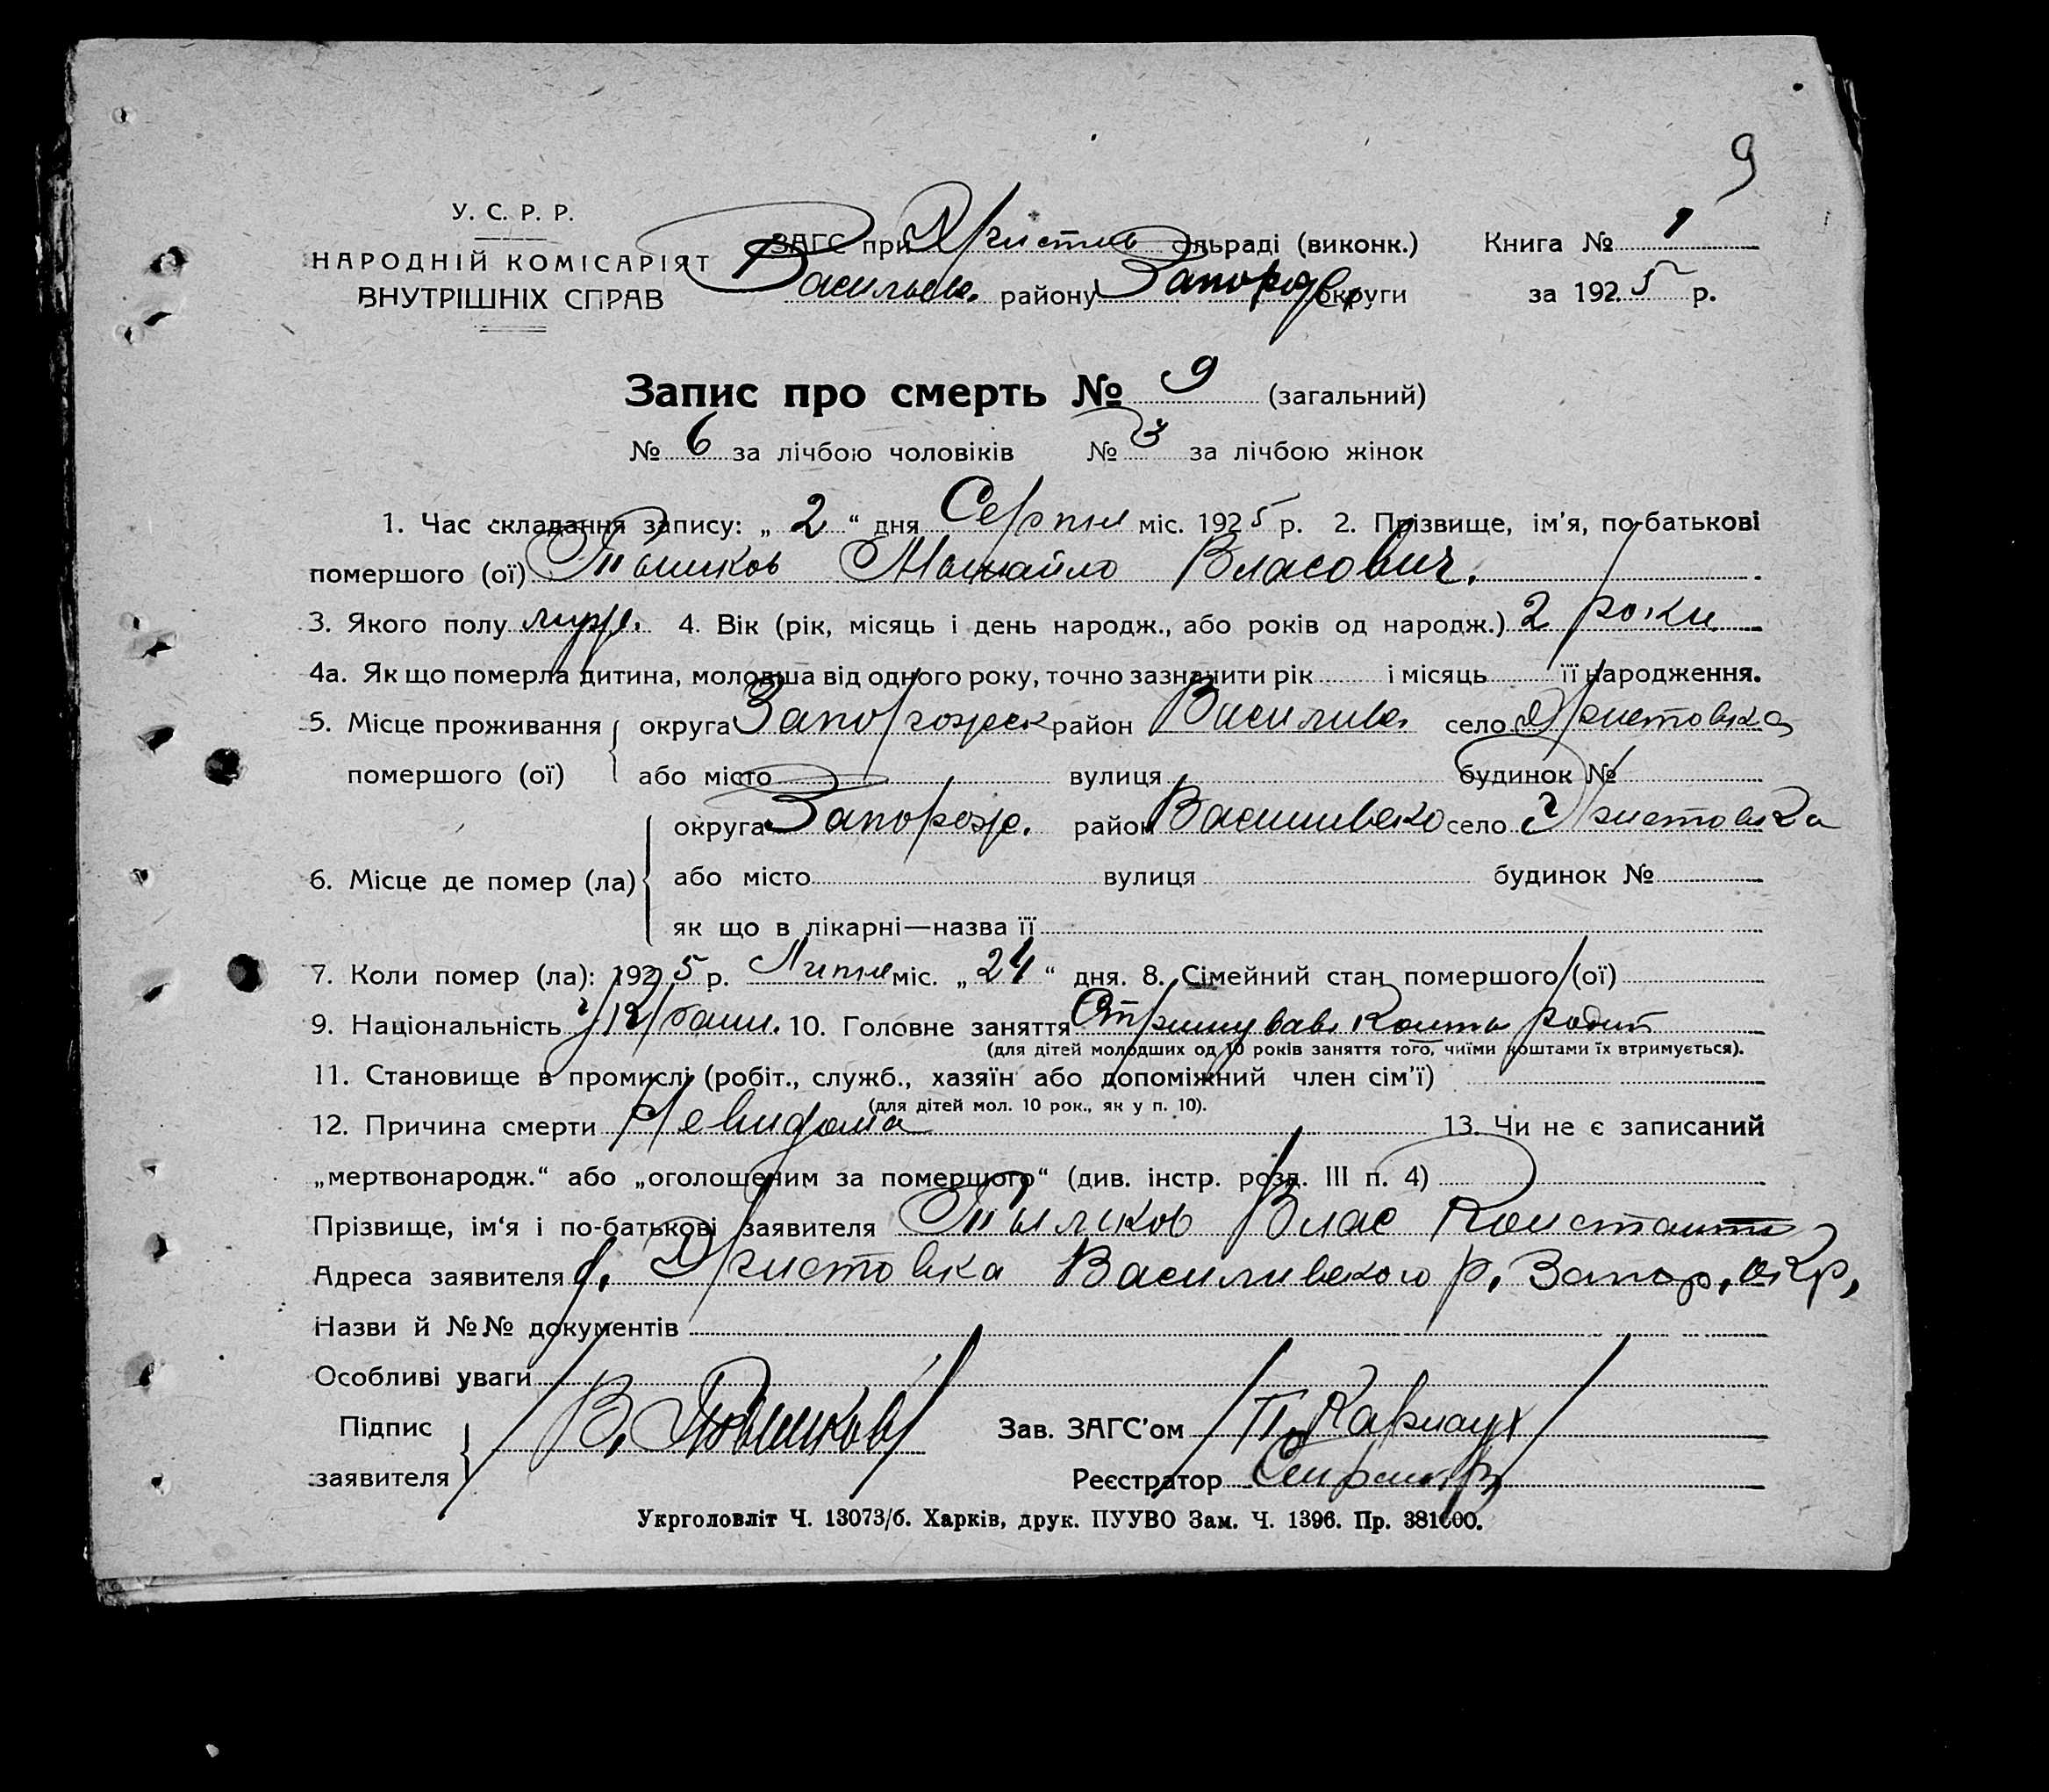 9
У. С. Р. Р.
НАРОДНІЙ КОМІСАРІЯТ
ВНУТРІШНІХ СПРАВ
ЗАГС при Христив сільраді (виконк.)
Васильев. району Запорож. округи
Книга № 1
за 1925 р.
Запис про смерть № 9 (загальний)
№ 6 за лічбою чоловіків № 3 за лічбою жінок
1. Час складання запису: „ 2 “ дня Серпня міс. 1925 р. 2. Прізвище, ім'я, по-батькові
помершого (ої) Михайло Власович.
3. Якого полу муж. 4. Вік (рік, місяць і день народж., або років од народж.) 2 роки
4а. Як що померла дитина, молодша від одного року, точно зазначити рік і місяць її народження.
5. Місце проживання округа Запорожск район Василив. село Христовка
помершого (ої) або місто вулиця будинок №
округа Запорож. район Василивско село Христовка
6. Місце де помер (ла) або місто вулиця будинок №
як що в лікарні—назва її
7. Коли помер (ла): 1925 р. Липня міс. „ 24 “ дня. 8. Сімейний стан помершого (ої)
9. Національність 10. Головне заняття
(для дітей молодших од 10 років заняття того, чиїми коштами їх втримується).
11. Становище в промислі (робіт., служб., хазяїн або допоміжний член сім'ї)
(для дітей мол. 10 рок., як у п. 10).
12. Причина смерти Невидома 13. Чи не є записаний
„мертвонародж.“ або „оголошеним за помершого“ (див. інстр. розд. III п. 4)
Прізвище, ім'я і по-батькові заявителя Влас Констант
Адреса заявителя с. Христовка Василивского р. Запор. окр,
Назви й №№ документів
Особливі уваги
Підпис
заявителя
Зав. ЗАГС'ом П. Карнаух
Реєстратор
Укрголовліт Ч. 13073/б. Харків, друк. ПУУВО Зам. Ч. 1396. Пр. 381000.